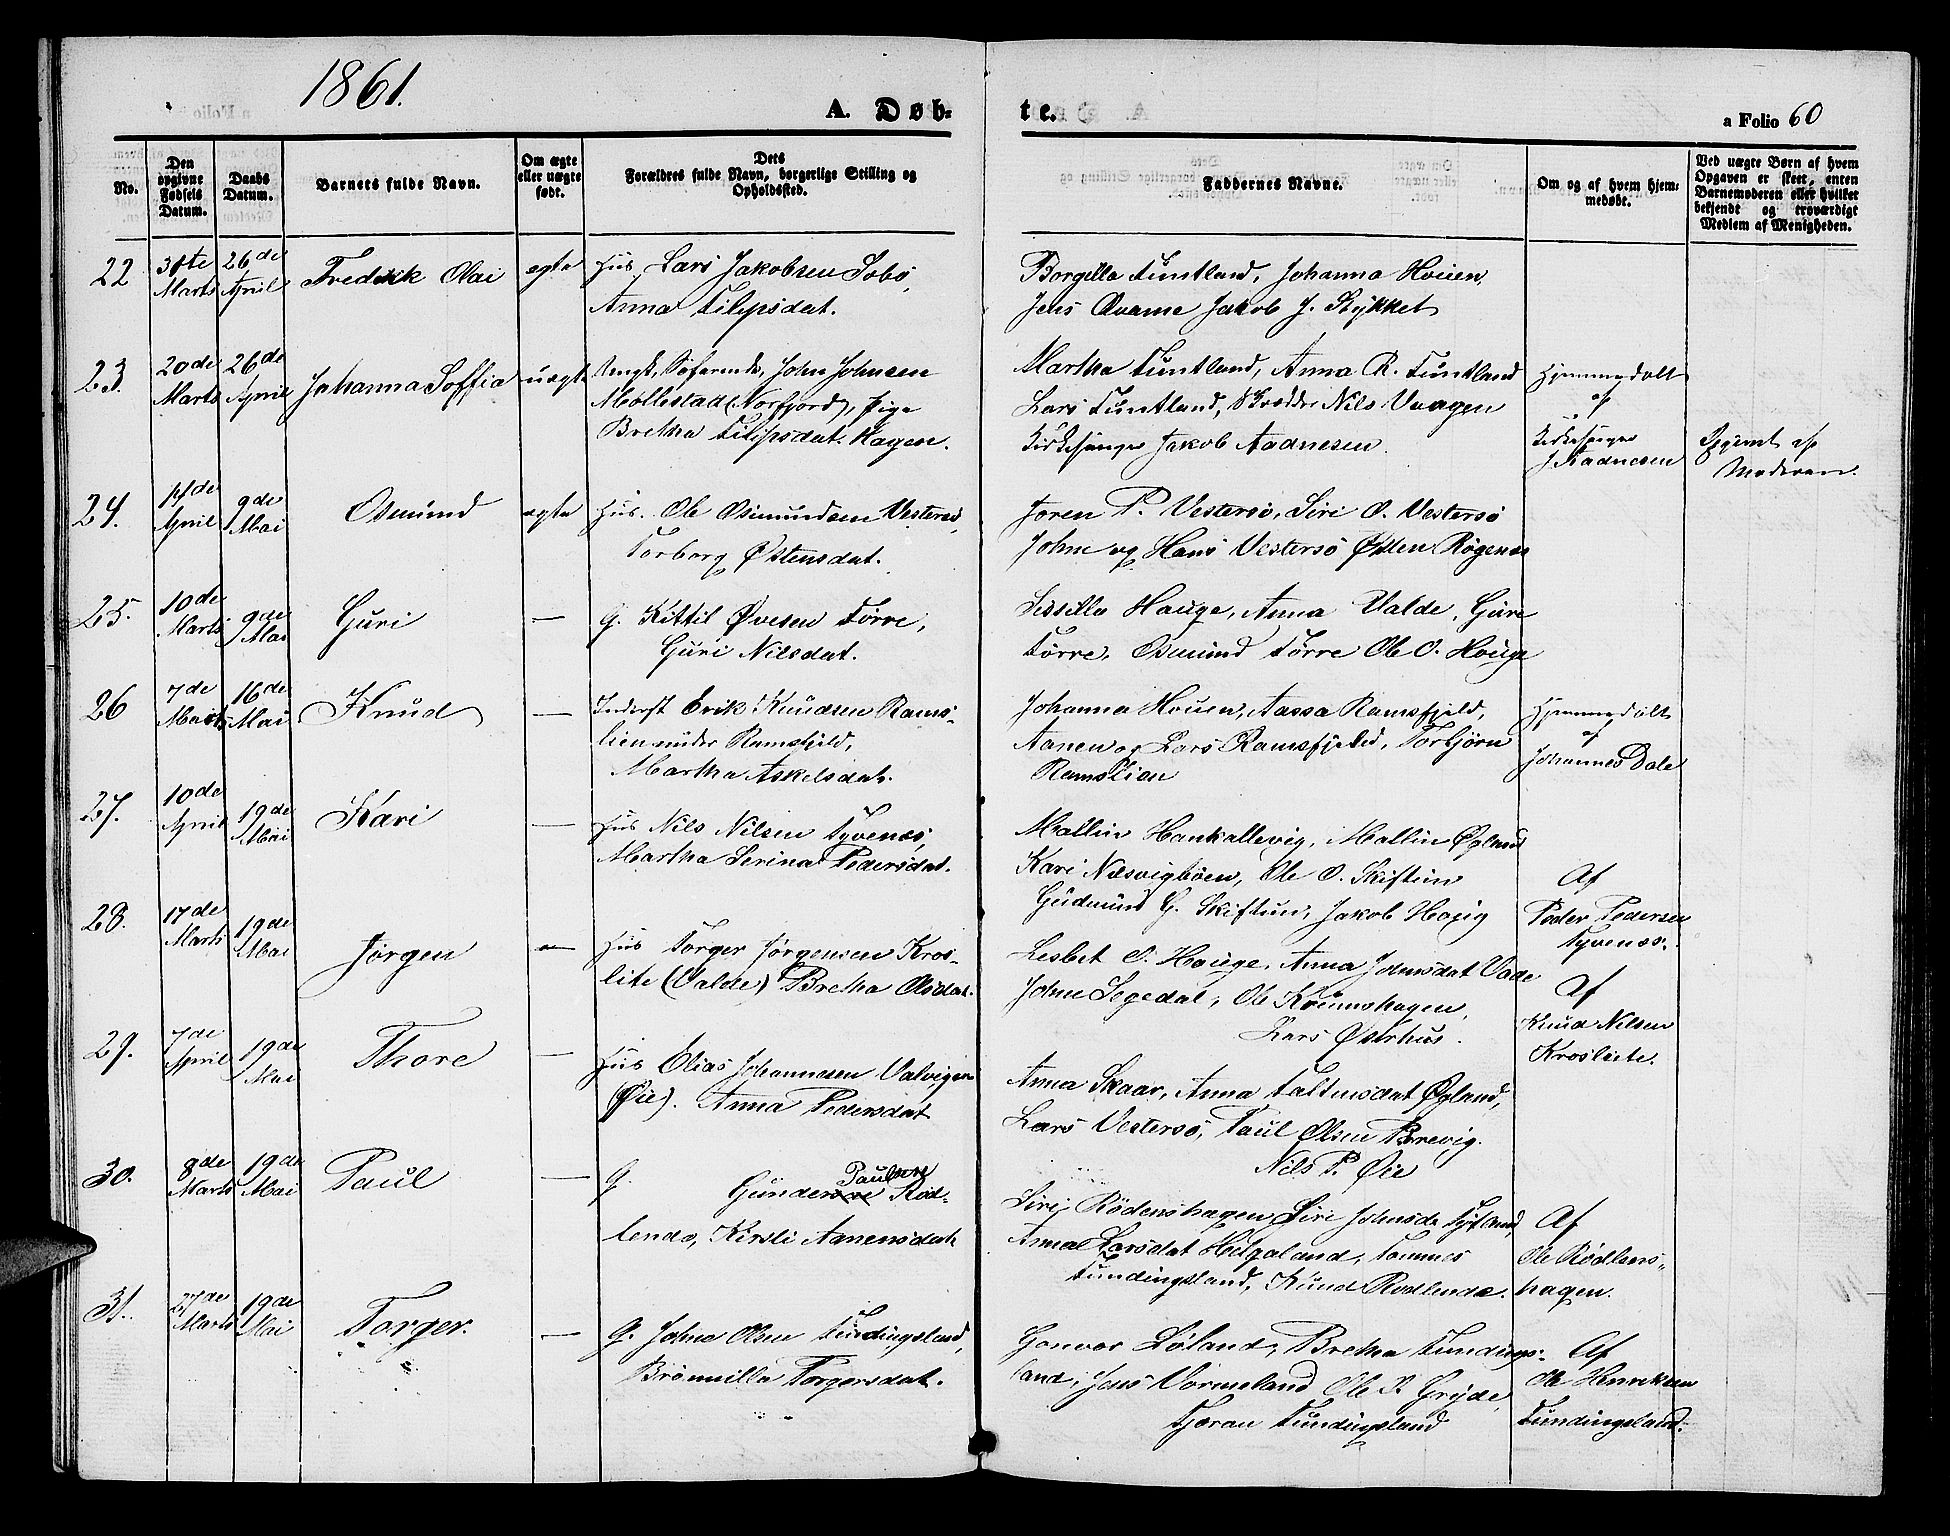 1861.
A. Døb=
te.
a Folio 60
No.
Den opgivne Fødsels Datum.
Daabs Datum.
Barnets fulde Navn.
Om ægte eller uægte født.
Dets Forældres fulde Navn, borgerlige Stilling og Opholdssted.
Faddernes Navne.
Om og af hvem hjem=medøbt.
Ved uægte Børn af hvem Opgaven er skeet, enten Barnemoderen eller hvilket bekjendt og troværdigt Medlem af Menigheden.
22 31te Marts 26de April Fredrik Olai egte Hus. Lars Jakobsen Sobø,
Anna Filipsdat.
Borgilla Tuntland, Johanna Houen,
Jens Qvame Jakob J. Stykket
23. 20de Marts 26de April Johanna Soffia uægte Ungk. Søfarende, John Johnsen
Mollestad (Norfjord), Pige
Bretha Filipsdat. Hagen.
Martha Tuntland, Anna R. Tuntland
Lars Tuntland, Skrædder Nils Vaagen
Kirkesanger Jakob Aadnesen.
Hjemmedøbt
af
Kirkesanger
J. Aadnesen
Opgivet af
Moderen.
24. 14de April 9de Mai Osmund egte Hus. Ole Osmundsen Vestersø,
Torborg Østensdat.
Joren P. Vestersø, Siri O. Vestersø
Johne og Hans Vestersø Østen Røgenæs
25. 10de Marts 9de Mai Guri — G. Kittil Øvesen Tørre,
Guri Nilsdat.
Sissilla Hauge, Anna Valde, Guri
Tørre, Osmund Tørre Ole O. Houge
26 7de Marts 16de Mai Knud — Inderst Erik Knudsen Rams-
lien under Ramsfjeld,
Martha Askelsdat.
Johanna Houen, Aassa Ramsfjeld,
Aanen og Lars Ramsfjeld, Torbjørn
Ramslien
Hjemmedøbt
af
Johannes Dale
27. 10de April 19de Mai Kari — Hus Nils Nilsen Tyvenæs,
Martha Serina Pedersdat.
Mallin Hankallevig, Mallin Øgland
Kari Næsvigbøen, Ole O. Skiftun
Gudmund G. Skiftun, Jakob Houg
Af
Peder Pedersen
Tyvenæs.
28. 17de Marts 19de Mai Jørgen — Hus Torger Jørgensen Kros-
lite (Valde) Bretha Olsdat.
Lesbet O. Hauge, Anna Johnsdat Vade
Johne Segedal, Ole Krumshagen,
Lars Østrhus.
Af
Knud Nilsen
Kroslite.
29. 7de April 19de Mai Thore — Hus Elias Johannesen Valvigen
(Øie). Anna Pedersdat
Anna Skaar, Anna Taltinsdat Øgland,
Lars Vestersø, Paul Olsen Brevig.
Nils P. Øie
30. 8de Marts 19de Mai Paul — G. Gunder Paulsen Rød-
lende, Kirsti Aanensdat
Siri Rødenshagen Siri Johnsd.
Anna Larsdat Helgaland, Tønnes
Fundingsland, Knud Rødlende.
Af
Ole Rødlens-
hagen.
31. 27de Marts 19de Mai Torger. — G. Johne Olsen Fundingsland,
Brønnilla Torgersdat.
Gonvor Løland, Bretha Fundings-
land, Jens Vormeland Ole P. Gryde,
Tjeran Fundingsland
Af
Ole Henriksen
Fundingsland.